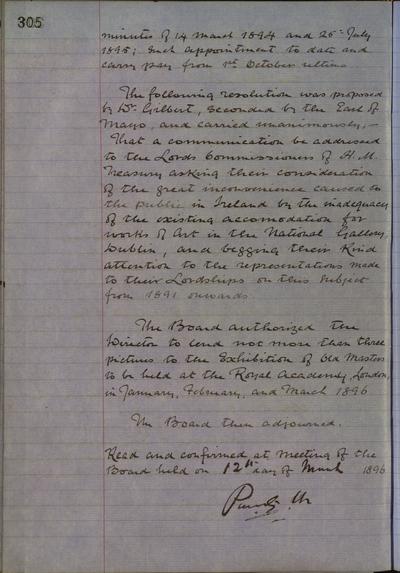 305
minutes of 14 March 1894 and 25th July
1895; Such appointment to date and
carry pay from 1st October ultimo
The following resolution was proposed
by Dr. Gilbert, seconded by the Earl of
Mayo, and carried unanimously;—
That a communication be addressed
to the Lords Commissioners of H. M.
Treasury asking their consideration
of the great inconvenience caused to
the public in Ireland by the inadequacy
of the existing accomodation for
works of Art in the National Gallery,
Dublin, and begging their kind
attention to the representations made
to their Lordships on this subject
from 1891 onwards
The Board authorized the
Director to lend not more than three
pictures to the Exhibition of Old Masters
to be held at the Royal Academy, London,
in January, February, and March 1896
The Board then adjourned.
Read and confirmed at Meeting of the
Board held on 12th day of March 1896